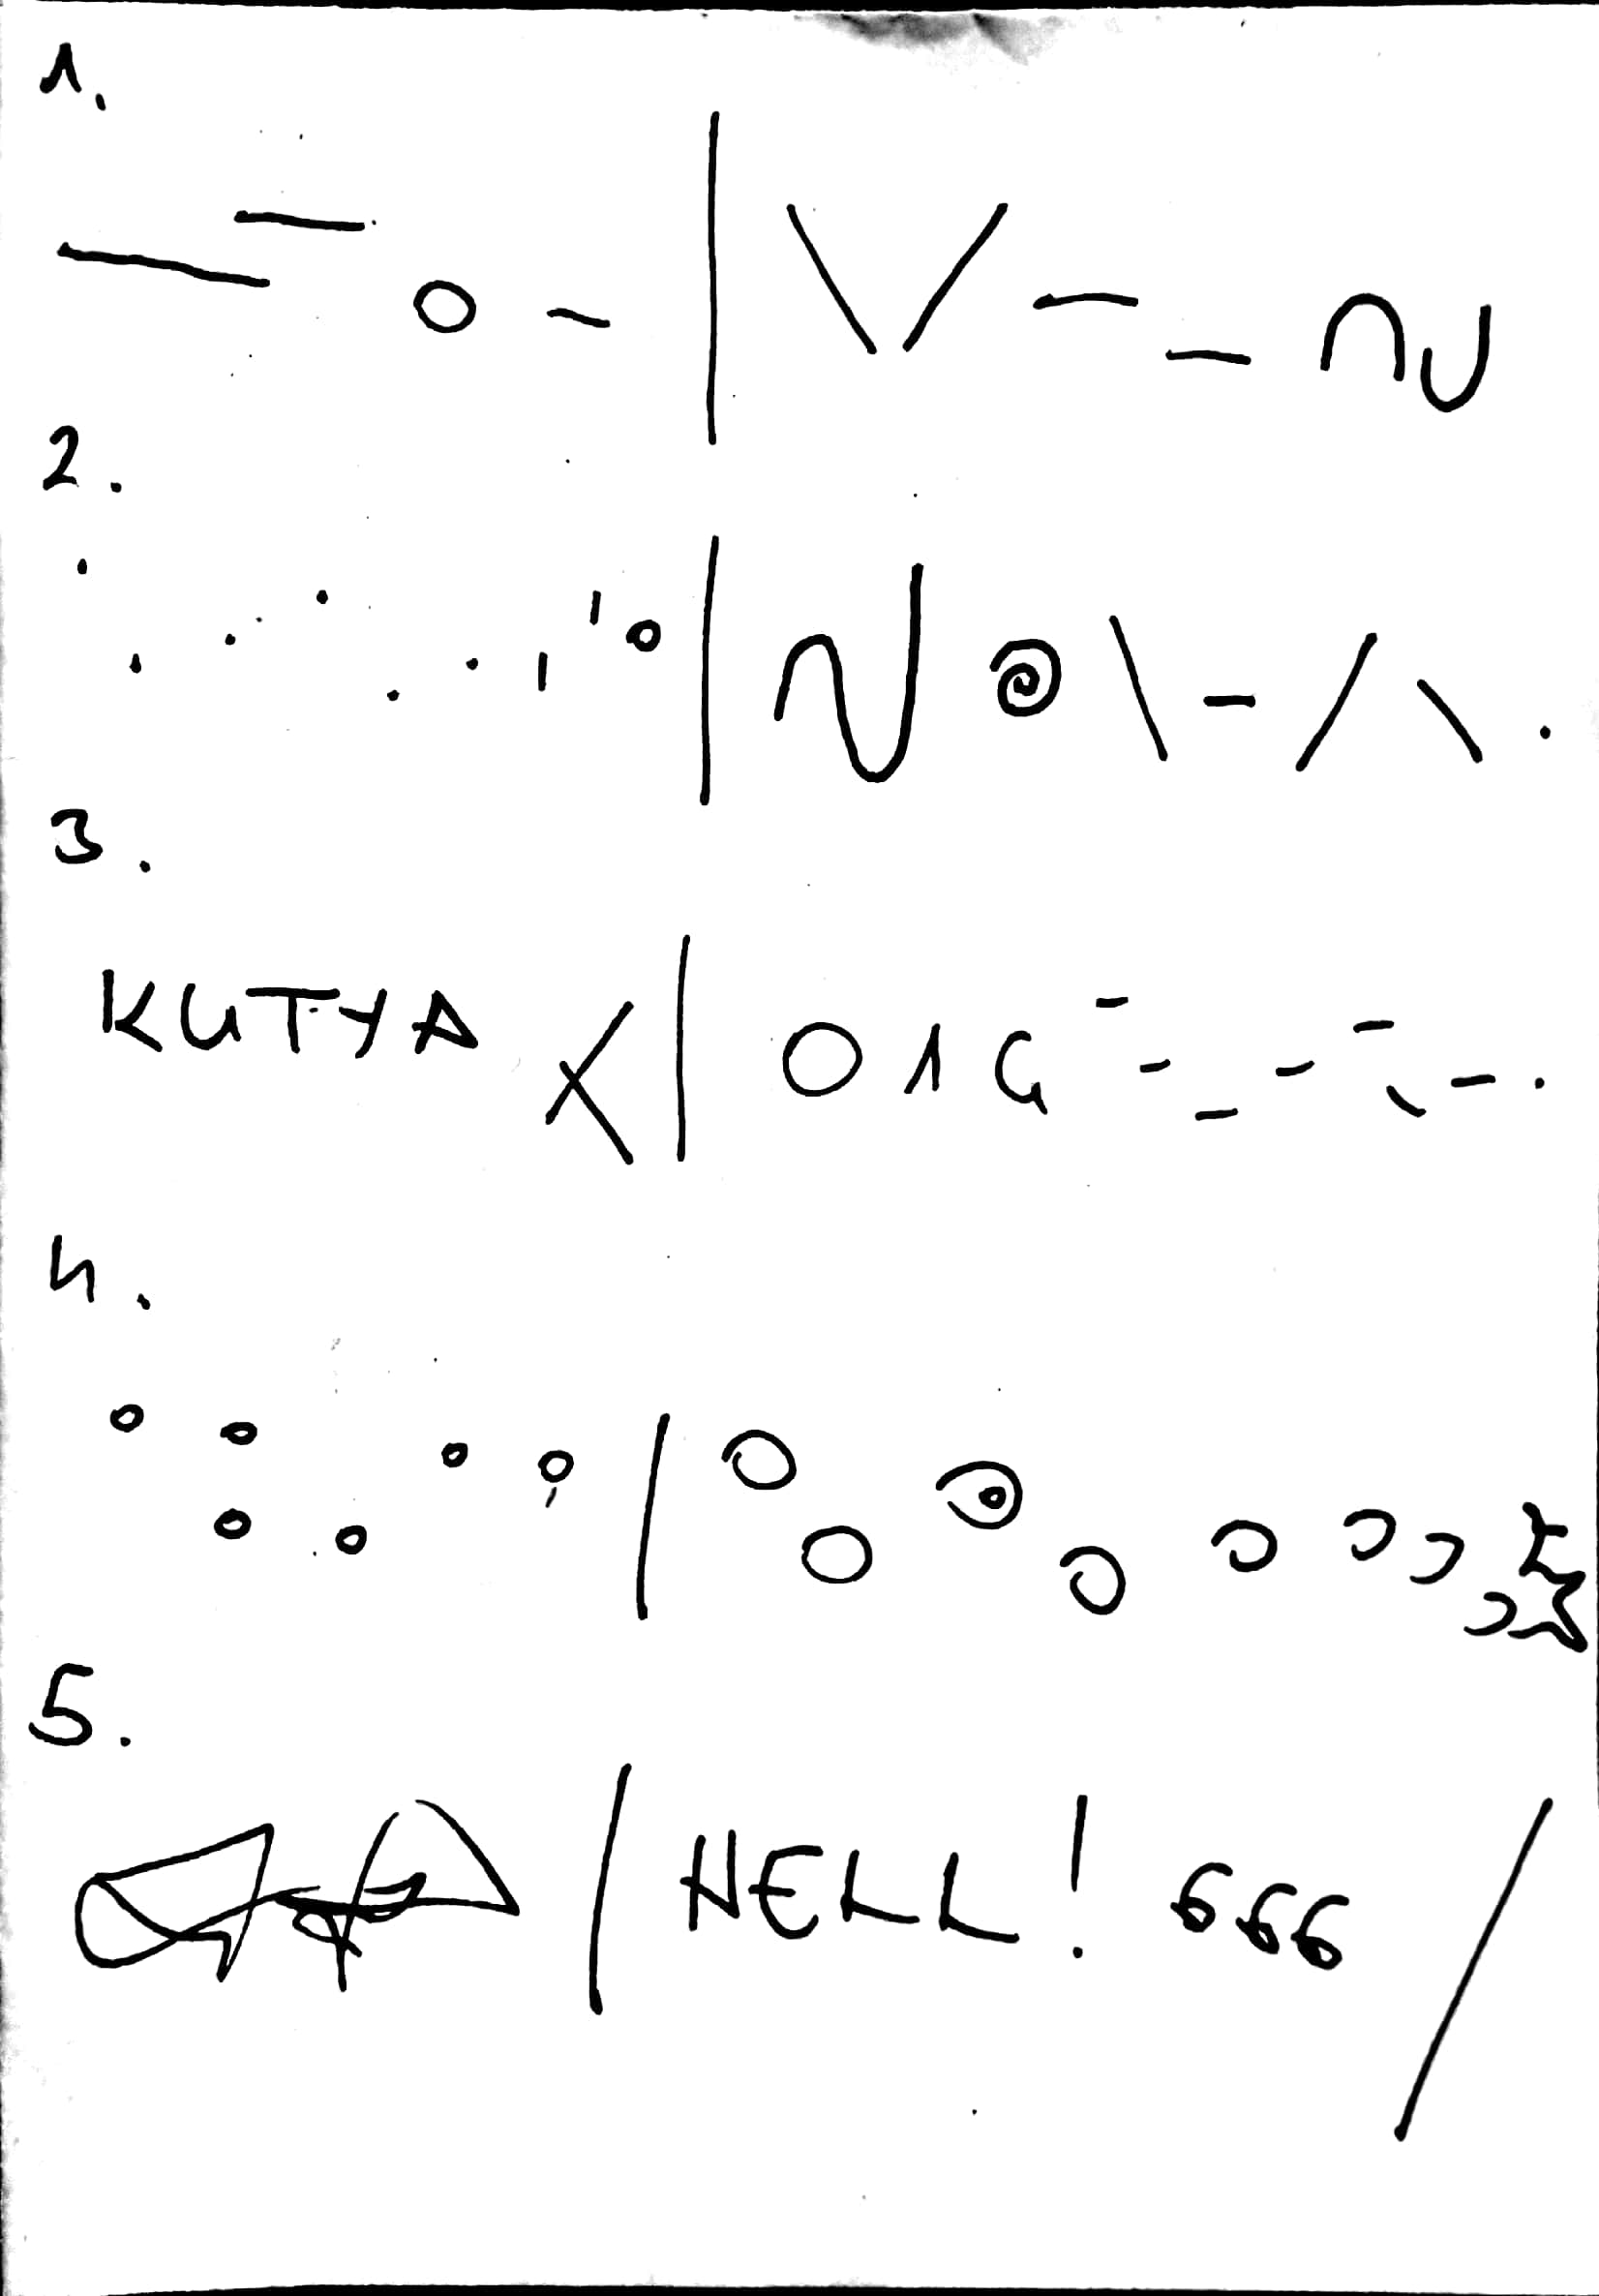 1.
2.
3.
KUTYA X | 0 1 G
4.
5.
HELL! 666